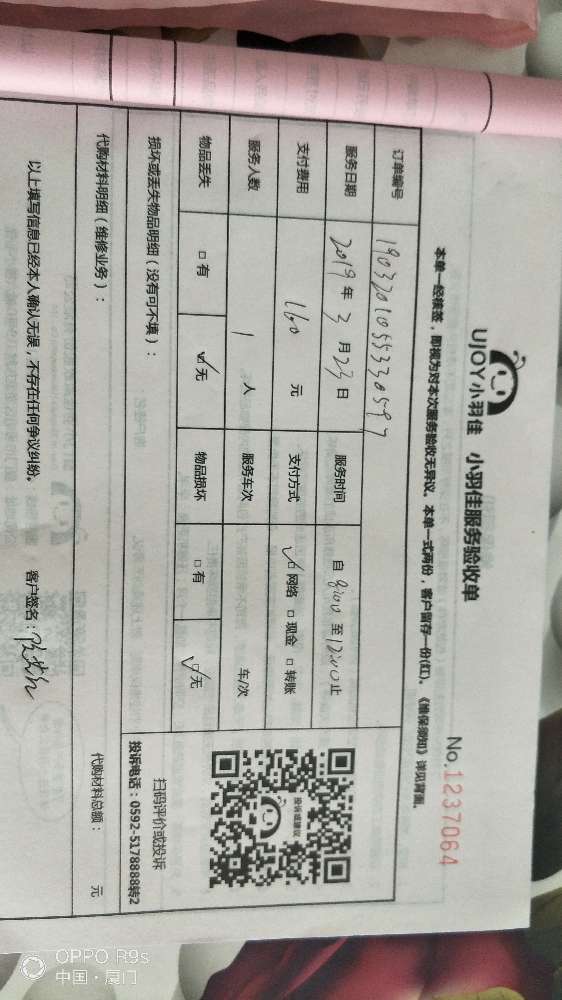 UJOY小羽佳 小羽佳服务验收单
No.1237064
本单一经核签，即视为对本次服务验收无异议。本单一式两份，客户留存一份(红)。《维保须知》详见背面。
订单编号 190320105533059 7
服务日期 2019年3月23日 服务时间 自8:00至12:00止
支付费用 160元 支付方式 ☑网络 □现金 □转账
服务人数 1人 服务车次 车/次
物品丢失 □有 ☑无 物品损坏 □有 ☑无
投诉或建议
扫码评价或投诉
投诉电话：0592-5178888转2
损坏或丢失物品明细（没有可不填）：
代购材料明细（维修业务）： 代购材料总额： 元
以上填写信息已经本人确认无误，不存在任何争议纠纷。 客户签名：
OPPO R9s
中国·厦门